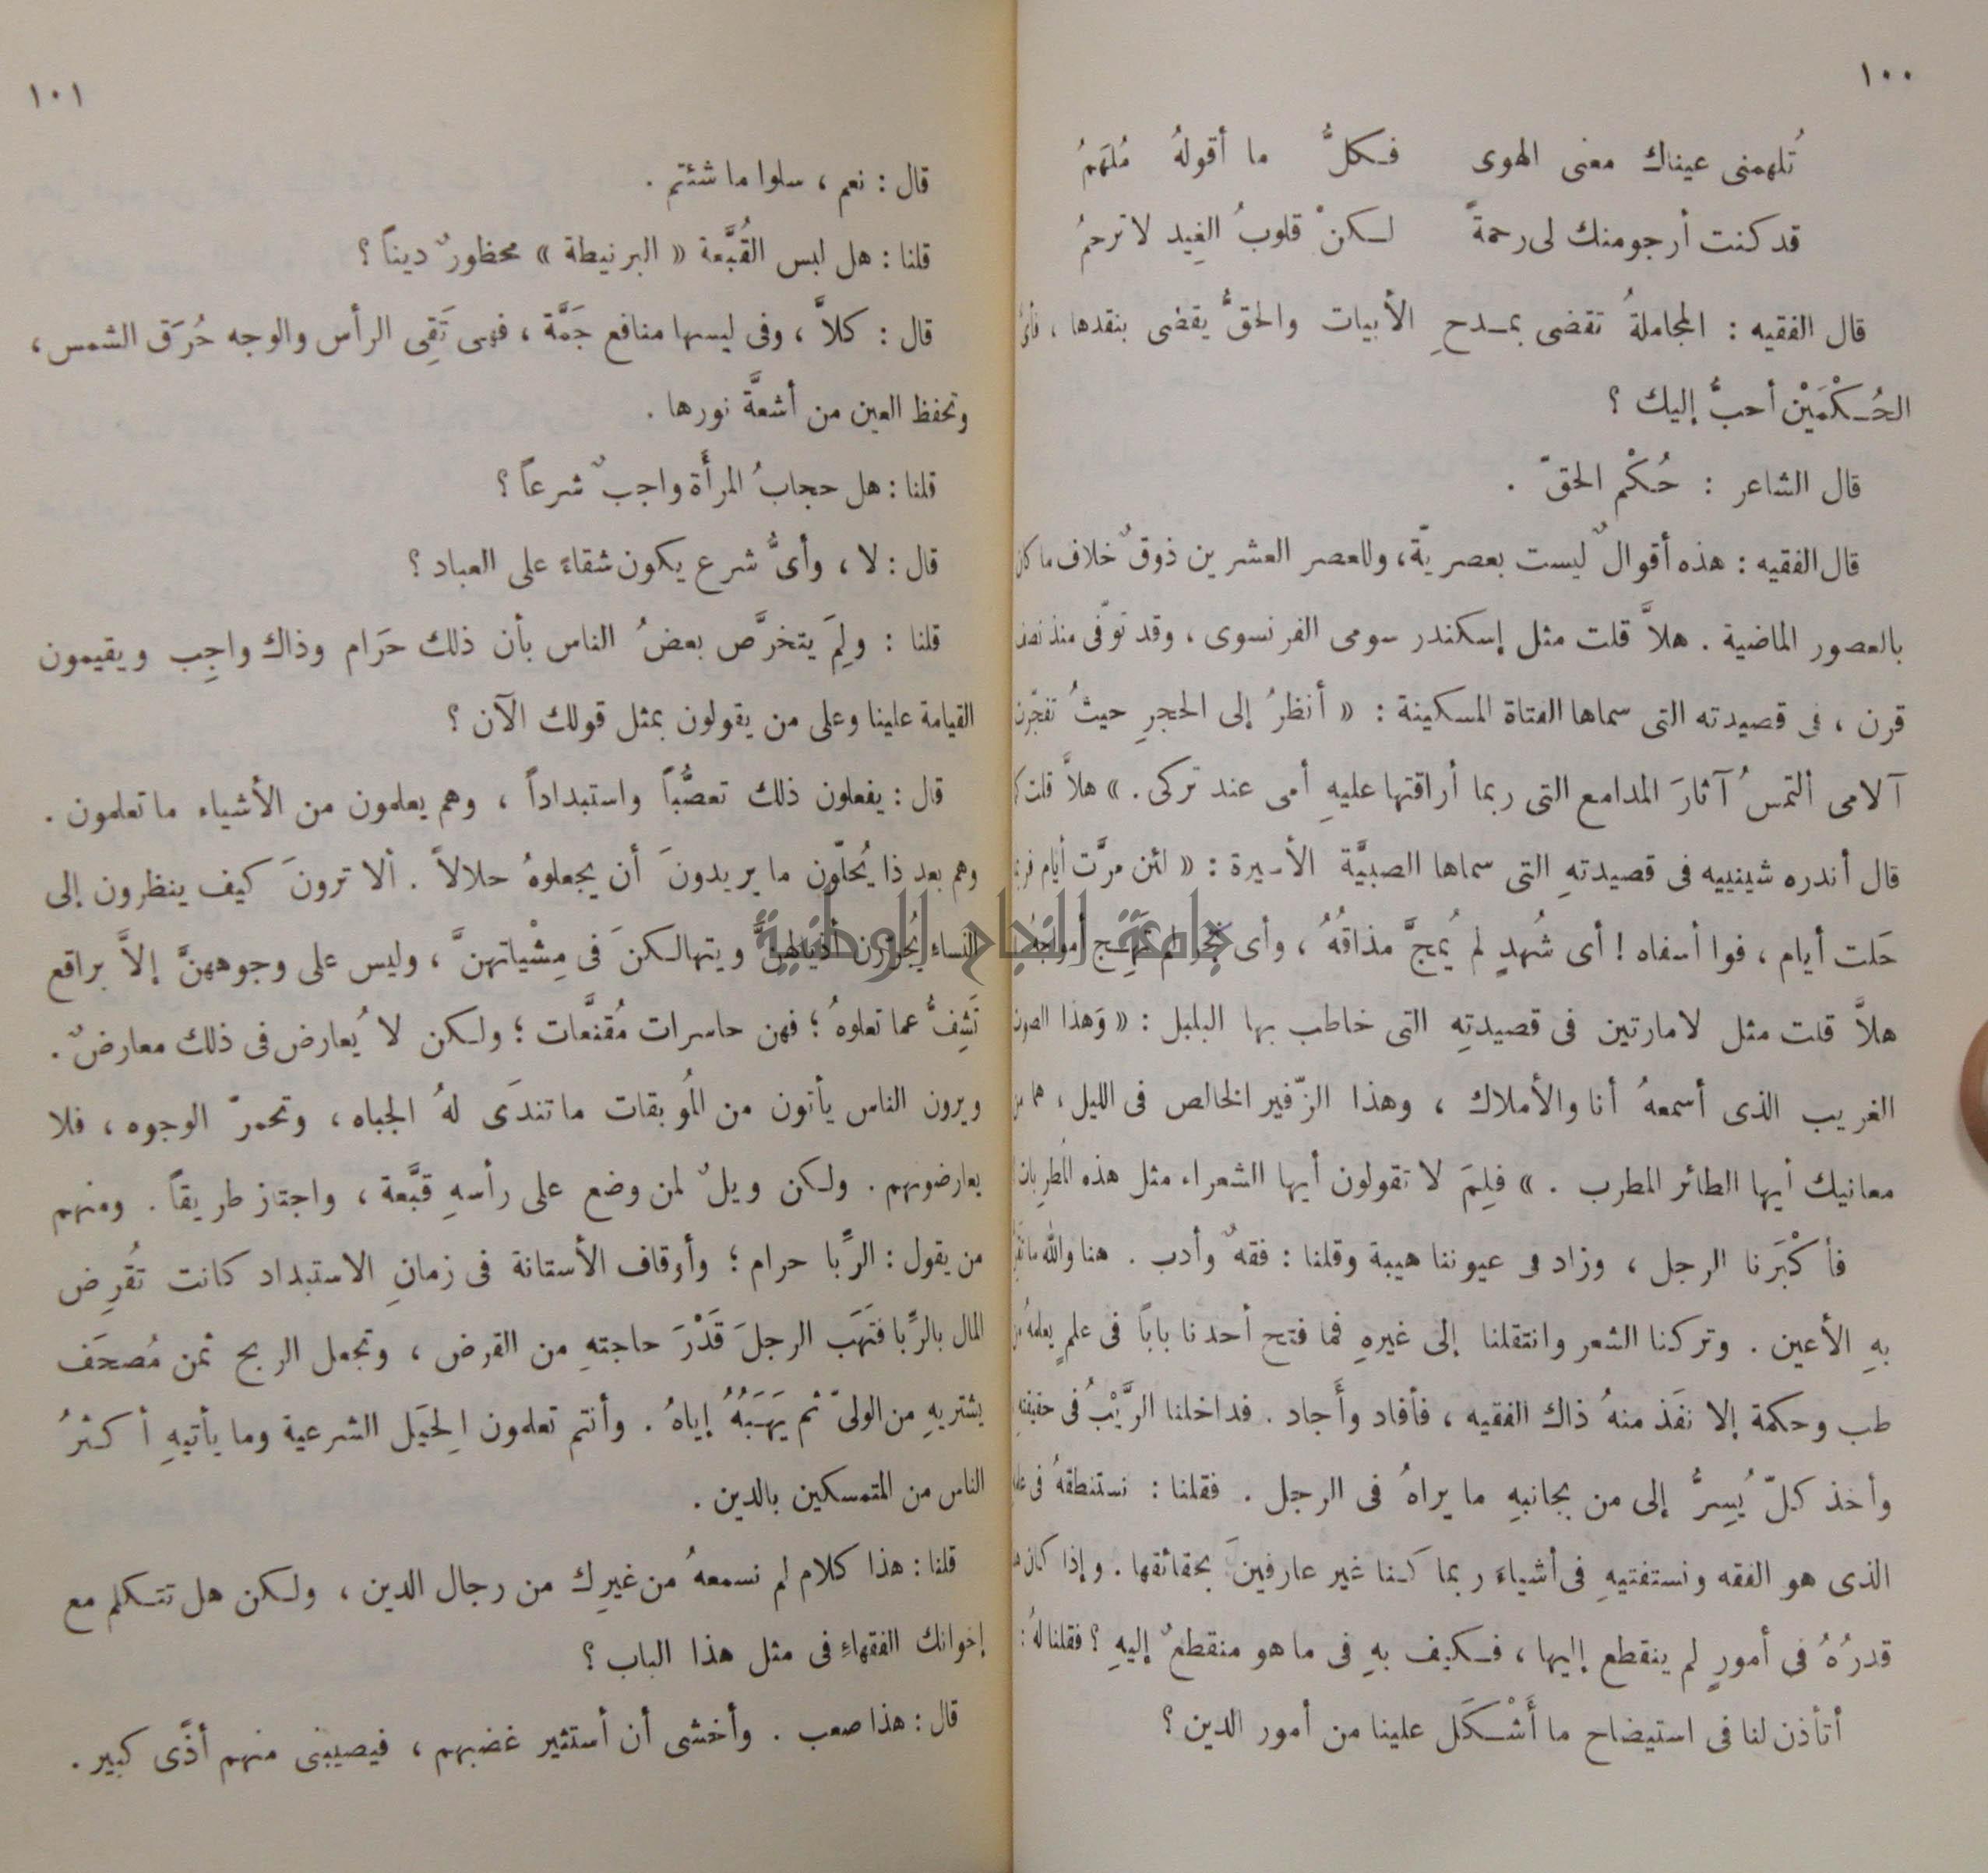 ١٠٠
تُلهمنى عيناك معنى الهوى فكلُّ ما أقولهُ مُلهَمُ
قد كنت أرجو منك لى رحمةً لكنْ قلوبُ الغِيد لا ترحمُ
قال الفقيه : المجاملةُ تقضى بمدحِ الأبيات والحقُّ يقضى بنقدها ، فأىُّ
الحُكْمَيْن أحبُّ إليك ؟
قال الشاعر : حُكْم الحقّ .
قال الفقيه : هذه أقوالٌ ليست بعصريّة، وللعصر العشرين ذوقٌ خلاف ما كان
بالعصور الماضية . هلاَّ قلت مثل إسكندر سومى الفرنسوى ، وقد توّفى منذ نصف
قرن ، فى قصيدته التى سماها الفتاة المسكينة : « أنظرُ إلى الحجرِ حيثُ تفجّرت
آلامى ألتمسُ آثارَ المدامع التى ربما أراقتها عليهِ أمى عند تركى . » هلاَّ قلت
قال أندره شينييه فى قصيدتهِ التى سماها الصبيَّة الأسيرة : « لئن مرَّت أيام
حَلت أيام ، فوا أسفاه ! أى شُهدٍ لم يُمجَّ مذاقُهُ ، وأى بحرٍ لم تَهِج أمواجهُ
هلاَّ قلت مثل لامارتين فى قصيدتِهِ التى خاطب بها البلبل : « وَهذا الصوت
الغريب الذى أسمعهُ أنا والأملاك ، وهذا الزّفير الخالص فى الليل ، هما من
معانيك أيها الطائر المطرب . » فلِمَ لا تقولون أيها الشعراء مثل هذه المُطرِبات
فأكْبَرنا الرجل ، وزاد فى عيوننا هيبة وقلنا : فقهٌ وأدب . هنا والله ما تقرّ
بهِ الأعين . وتركنا الشعر وانتقلنا إلى غيرهِ فما فتح أحدنا باباً فى علمٍ يعلمهُ من
طب وحكمة إلا نفَذ منهُ ذاك الفقيه ، فأفاد وأَجاد . فداخلنا الرَّيْبُ فى حقيقته
وأخذ كلّ يُسِرُّ إلى من بجانبهِ ما يراهُ فى الرجل . فقلنا : نستنطقهُ فى علمه
الذى هو الفقه ونستفتيهِ فى أشياءَ ربما كنا غير عارفينَ بحقائقها . وإذا كان هذا
قدرُهُ فى أمورٍ لم ينقطع إليها ، فكيف بهِ فى ما هو منقطعٌ إليهِ ؟ فقلنا لهُ :
أتأذن لنا فى استيضاح ما أَشْكَل علينا من أمور الدين ؟
١٠١
قال : نعم ، سلوا ما شئتم .
قلنا : هل لبس القُبَّعة « البرنيطة » محظورٌ ديناً ؟
قال : كلاَّ ، وفى لبسها منافع جَمَّة ، فهى تَقِى الرأس والوجه حُرَق الشمس ،
وتحفظ العين من أشعَّة نورها .
قلنا : هل حجابُ المرأَة واجبٌ شرعاً ؟
قال : لا ، وأىُّ شرع يكون شقاءً على العباد ؟
قلنا : ولِمَ يتخرَّص بعضُ الناس بأن ذلك حَرَام وذاك واجِب ويقيمون
القيامة علينا وعلى من يقولون بمثل قولك الآن ؟
قال : يفعلون ذلك تعصُّباً واستبداداً ، وهم يعلمون من الأشياء ما تعلمون .
وهم بعد ذا يُحلّون ما يريدونَ أن يجعلوهُ حلالاً . ألا ترونَ كيف ينظرون إلى
النساء يُجررن أذيالهنَّ ويتهالكنَ فى مِشْياتهنَّ ، وليس على وجوههنَّ إلاَّ براقع
تَشِفُّ عما تعلوهُ ؛ فهن حاسرات مُقنَّعات ؛ ولكن لا يُعارض فى ذلك معارضٌ .
ويرون الناس يأتون من المُوبقات ما تندَى لهُ الجباه ، وتحمرّ الوجوه ، فلا
يعارضونهم . ولكن ويلٌ لمن وضع على رأسهِ قبَّعة ، واجتاز طريقاً . ومنهم
من يقول : الرِّبا حرام ؛ وأوقاف الأستانة فى زمانِ الاستبداد كانت تُقرِض
المال بالرِّبا فتَهَب الرجلَ قَدْرَ حاجتهِ من القرض ، وتجعل الربح ثمن مُصحَف
يشتريهِ من الولىّ ثم يَهَبُهُ إياهُ . وأنتم تعلمون الِحيَل الشرعية وما يأتيهِ أكثرُ
الناس من المتمسكين بالدين .
قلنا : هذا كلام لم نسمعهُ من غيرِك من رجال الدين ، ولكن هل تتكلم مع
إخوانك الفقهاءِ فى مثل هذا الباب ؟
قال : هذا صعب . وأخشى أن أستثير غضبهم ، فيصيبنى منهم أذًى كبير .
جامعة النجاح الوطنية